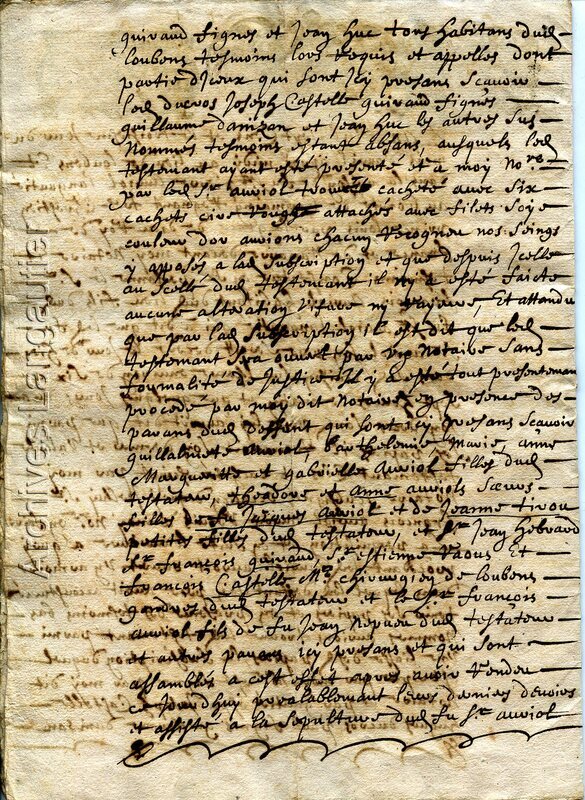 guiraud fignes et Jean huc tous habitans dud
Loubens tesmoins lors requis et appelles dont
partie diceux qui sont icy presans scavoir
led ducros Joseph Castelle guiraud fignes
guillaume danizan et Jean huc les autres sus
nommes tesmoins estant absans, ausquels led
testemant ayant esté presenté et a moy no.re
par led Sr auriol trouvé cacheté avec six
cachets cire rouge attachés avec filets soye
couleur dor avions chacun recogneu nos seings
y apposés a lad subscription et que despuis Icelle
au scellé dud testemant il ny a esté faicte
aucune alteration viface ny rayeure, Et attandu
que par lad subscription il est dit que led
testemant sera ouvert par un Notaire sans
formalité de Justice Il y a esté tout presentemant
procedé par moy dit Notaire en presence des
parans dud deffunt qui sont icy presans scavoir
guillalmete auriol barthelemie, Marie, anne
Margueritte et gabrielle auriol filles dud
testateur, theodore et anne auriols sœurs
filles de fu Jacques auriol et de Jeanne tirou
petites filles dud testateur, et Sr Jean Hebrard
Sr françois guiraud Sr estienne Vaous Et
françois Castelle Me chirurgien de loubens
gendres dud testateur et le Sr françois
auriol fils de fu Jean Nepveu dud testateur
et autres parans icy presans et qui sont
assamblés a cest effet apres avoir rendeu
ce Jourdhuy prealablemant leurs derniers devoirs
et assisté a la sepulture dud fu Sr auriol
Archives Langautier